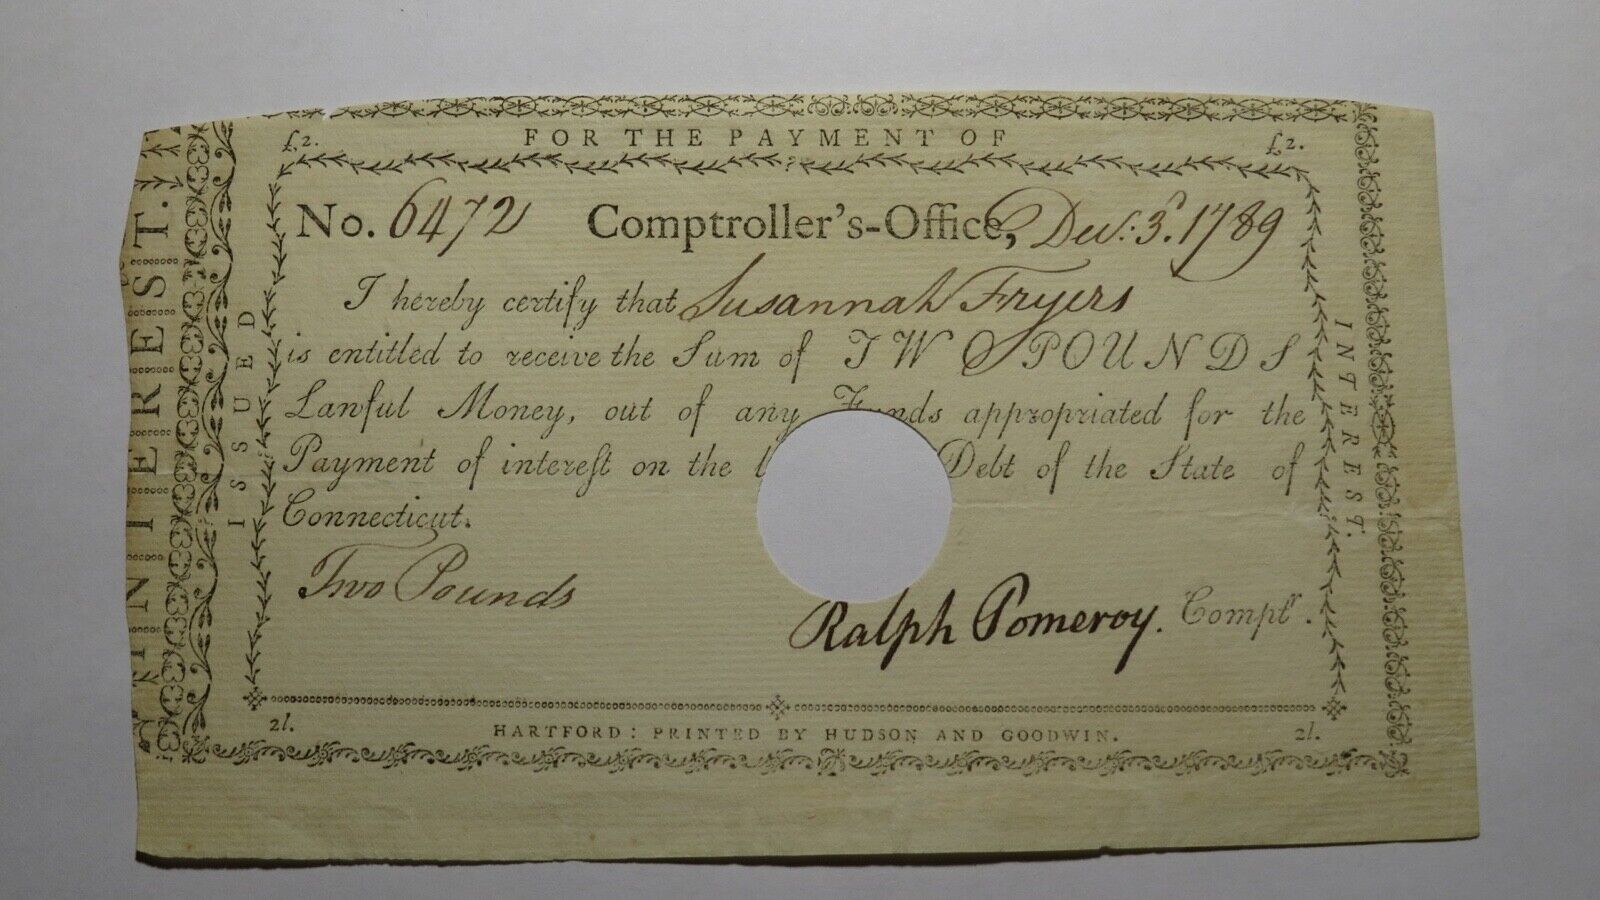 £2. FOR THE PAYMENT OF £2.
No. 6472 Comptroller's-Office, Dec: 3d. 1789
I hereby certify that Susannah Fryers
is entitled to receive the Sum of TWO POUNDS
Lawful Money, out of any Funds appropriated for the
Payment of intereſt on the Debt of the State of
Connecticut.
Two Pounds
Ralph Pomeroy. Complr.
2l. HARTFORD: PRINTED BY HUDSON AND GOODWIN. 2l.
INTEREST.
ISSUED
INTEREST.